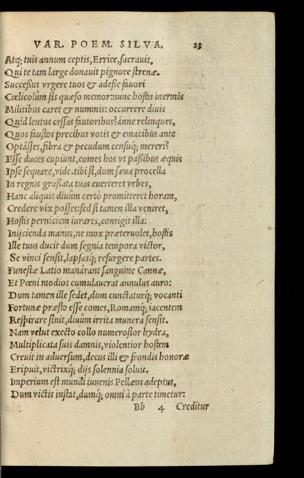 VAR. POEM. SILVA. 25
Atq; tuis annum ceptis, Errice, sacravit,
Qui te tam large donauit pignore strenæ.
Successus vrgere tuos & adesse fauori
Cœlicolûm sis quæso memor: nunc hostis inermis
Militibus caret & nummis: occurrere diuis
Quid lentus cessas fautoribus? ánne relinques,
Quos faustos precibus votis & enacibus ante
Optâsses, fibra & pecudum censuq; mereri?
Esse duces cupiunt, comes hos vt passibus æquis
Ipse sequare, vide. tibi si, dum sæua procella
In regnis grassata tuis euerteret vrbes,
Hanc aliquis diuûm certò promitteret horam,
Credere vix posses: sed si tamen illa veniret,
Hostis perniciem iurares, contigit illa:
Inijcienda manus, ne mox præteruolet, hostis
Ille tuus ducit dum segnia tempora victor,
Se vinci sensit, lapsasq; resurgere partes.
Funestæ Latio manârant sanguine Cannæ,
Et Pœni modios cumulauerat annulus auro:
Dum tamen ille sedet, dum cunctaturq; vocanti
Fortunæ præsto esse comes, Romamq; iacentem
Respirare sinit, diuûm irrita munera sensit.
Nam velut execto collo numerosior hydra,
Multiplicata suis damnis, violentior hostem
Creuit in aduersum, decus illi & frondis honoræ
Eripuit, victrixq; dijs solennia soluit.
Imperium est mundi iuuenis Pellæus adeptus,
Dum victis instat, dumq; omni à parte timetur:
Bb 4 Creditur